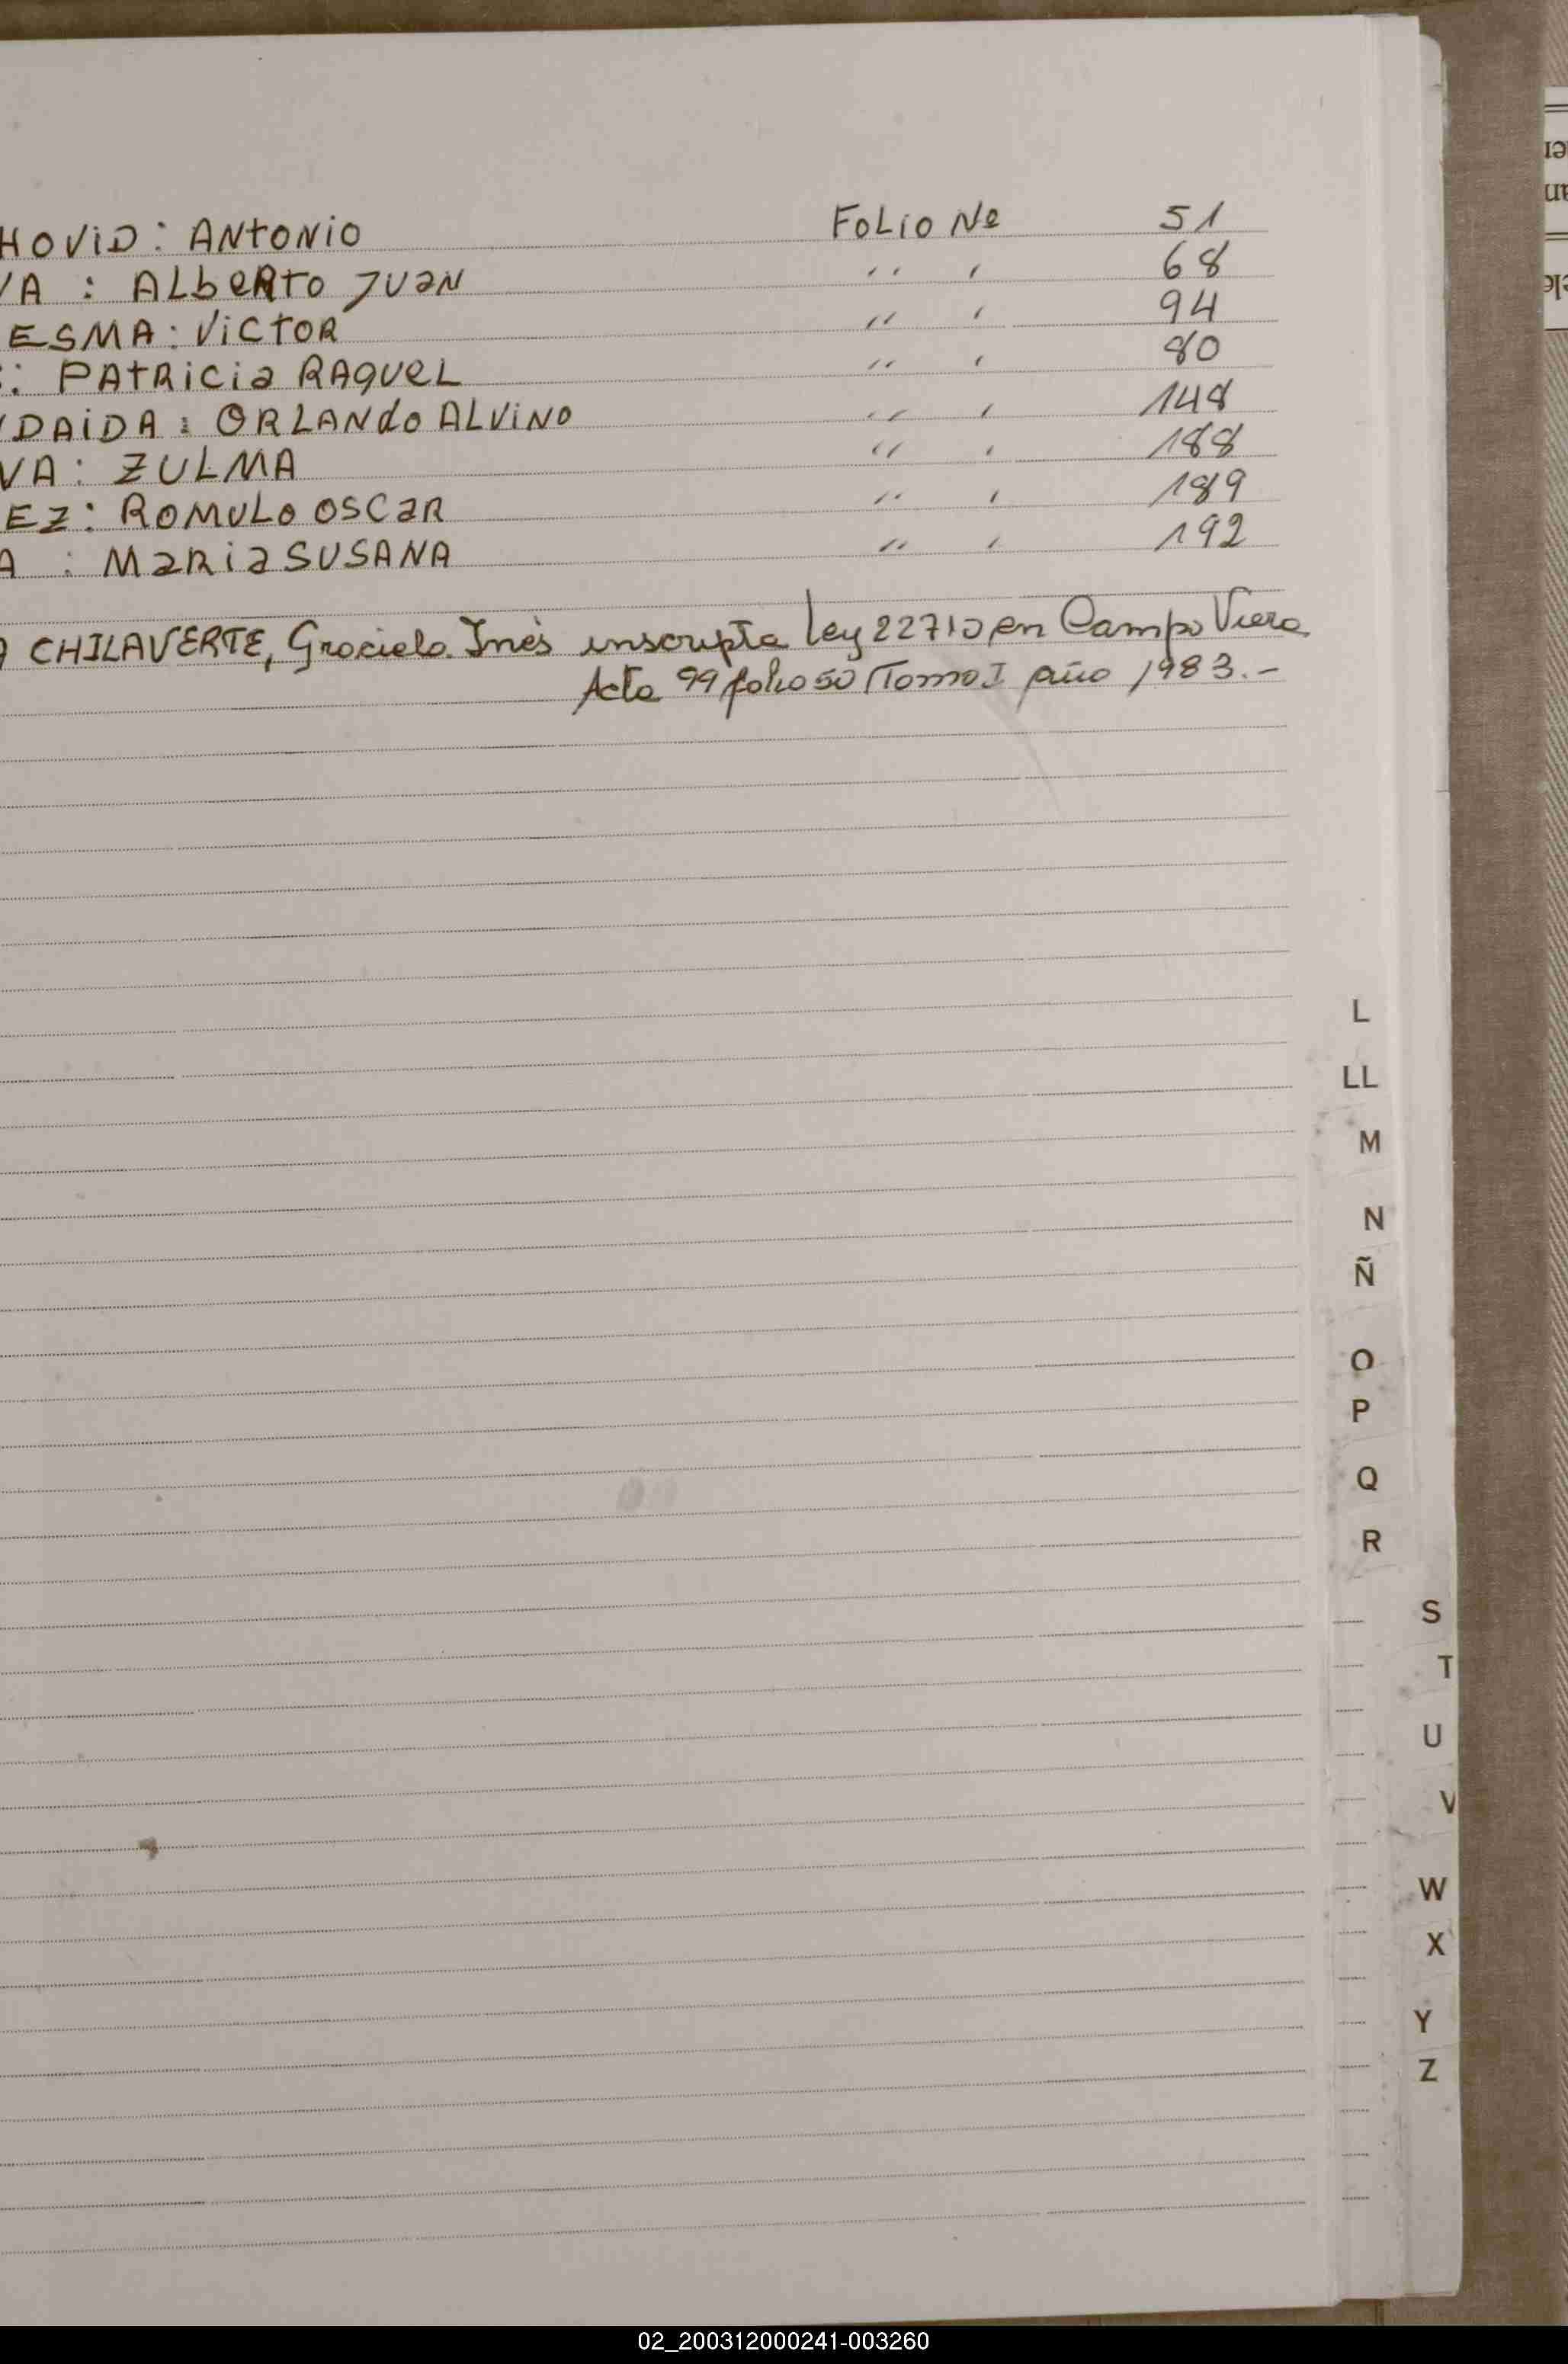 HOVID: ANTONIO FOLIO Nº 51
VA : ALbERTO JUAN " " 68
ESMA: VICTOR " " 94
: PATRICIA RAQUEL " " 80
DAIDA: ORLANdO ALVINO " " 148
VA: ZULMA " " 188
EZ: ROMULO OSCAR " " 189
A : MARIA SUSANA " " 192
CHILAVERTE, Graciela Inés inscripta Ley 22710 en Campo Viera
Acta 99 folio 50 Tomo I año 1983.-
L
LL
M
N
Ñ
O
P
Q
R
S
T
U
V
W
X
Y
Z
02_200312000241-003260